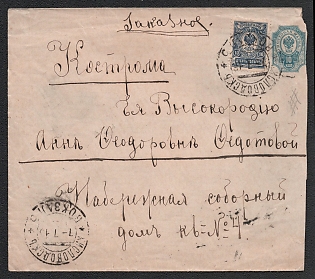 Заказное.
Кострома
Ея Высокородію
Аннѣ Ѳеодоровнѣ Ѳедотовой
Набережная соборный
домъ кв. №4